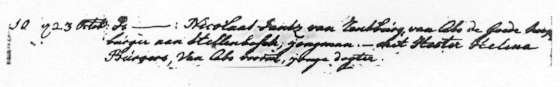 10 23 Octob: De ———: Nicolaas Jantz van Rensburg, van Cabo de Goede Hoop
burger aan Stellenbosch, jongman, — met Hester Helena
Burgers, van Cabo voorm:, jonge dogter.